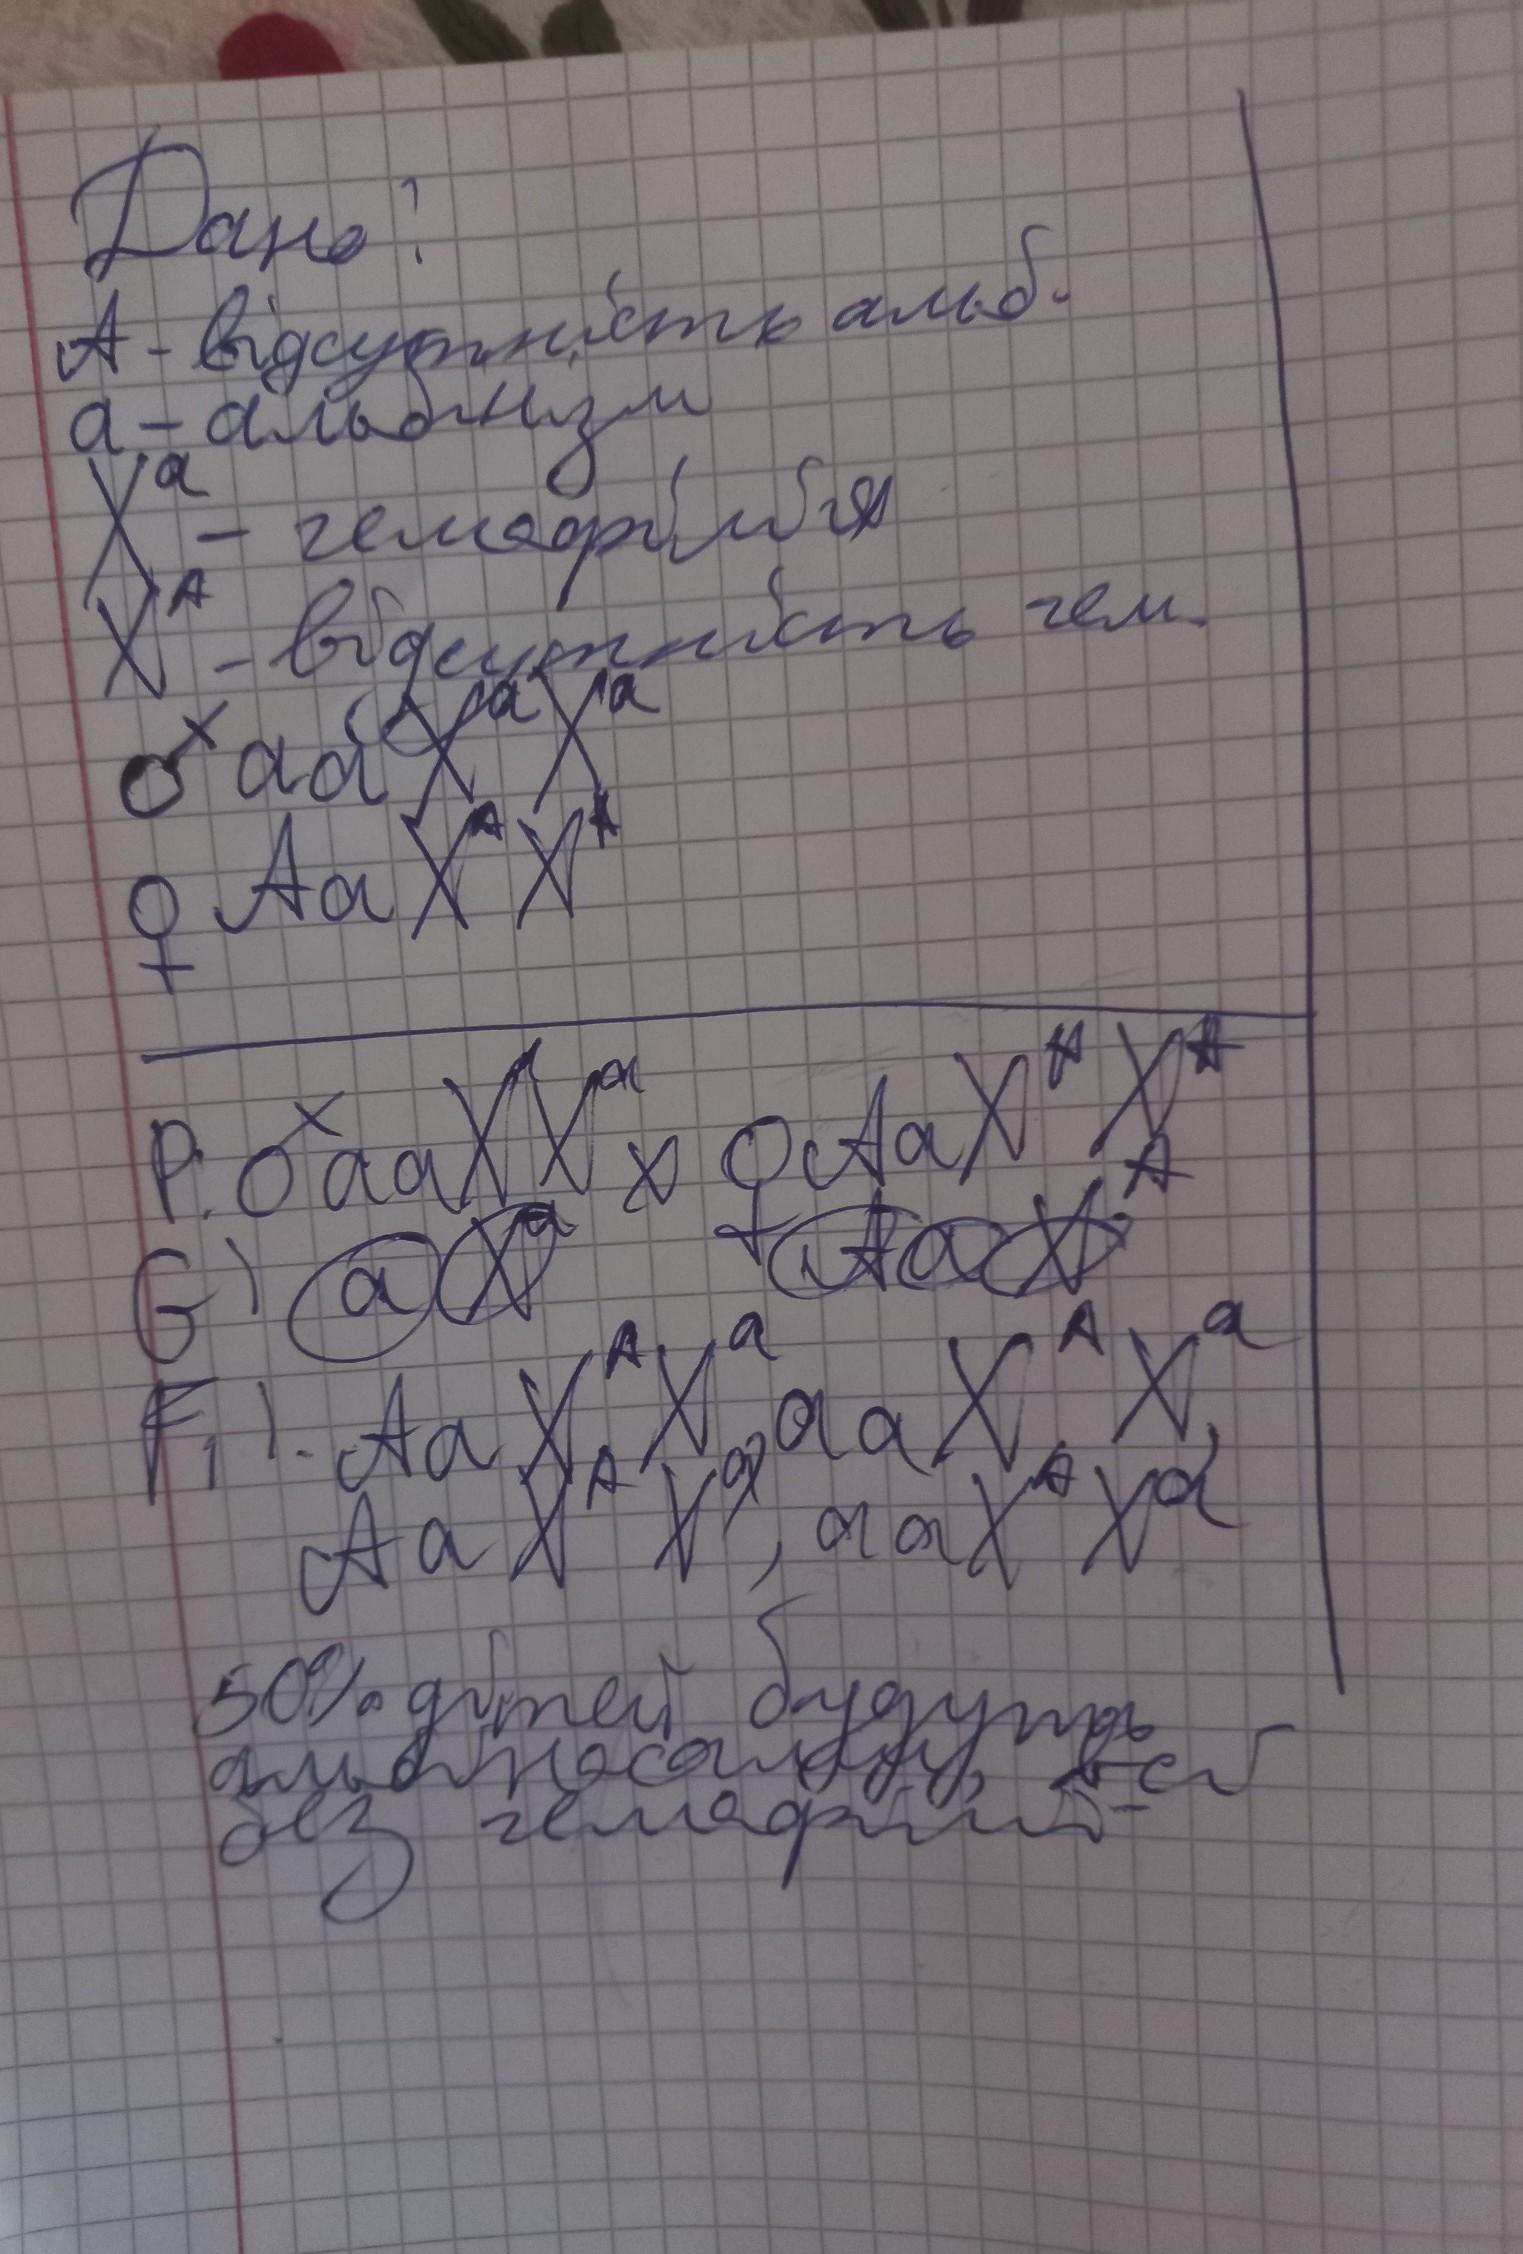 Дано:
A - відсутність альб.
a - альбінізм
Xᵃ - гемофілія
Xᴬ - відсутність гем.
♂ aa XᵃXᵃ
♀ Aa XᴬXᴬ
P: ♂ aaXXᵃ x ♀ AaXᴬXᴬ
G) a Xᵃ A a Xᴬ
F₁). AaXᴬXᵃ, aaXᴬXᵃ,
AaXᴬXᵃ, aaXᴬXᵃ
50% дітей будуть
без гемофілії